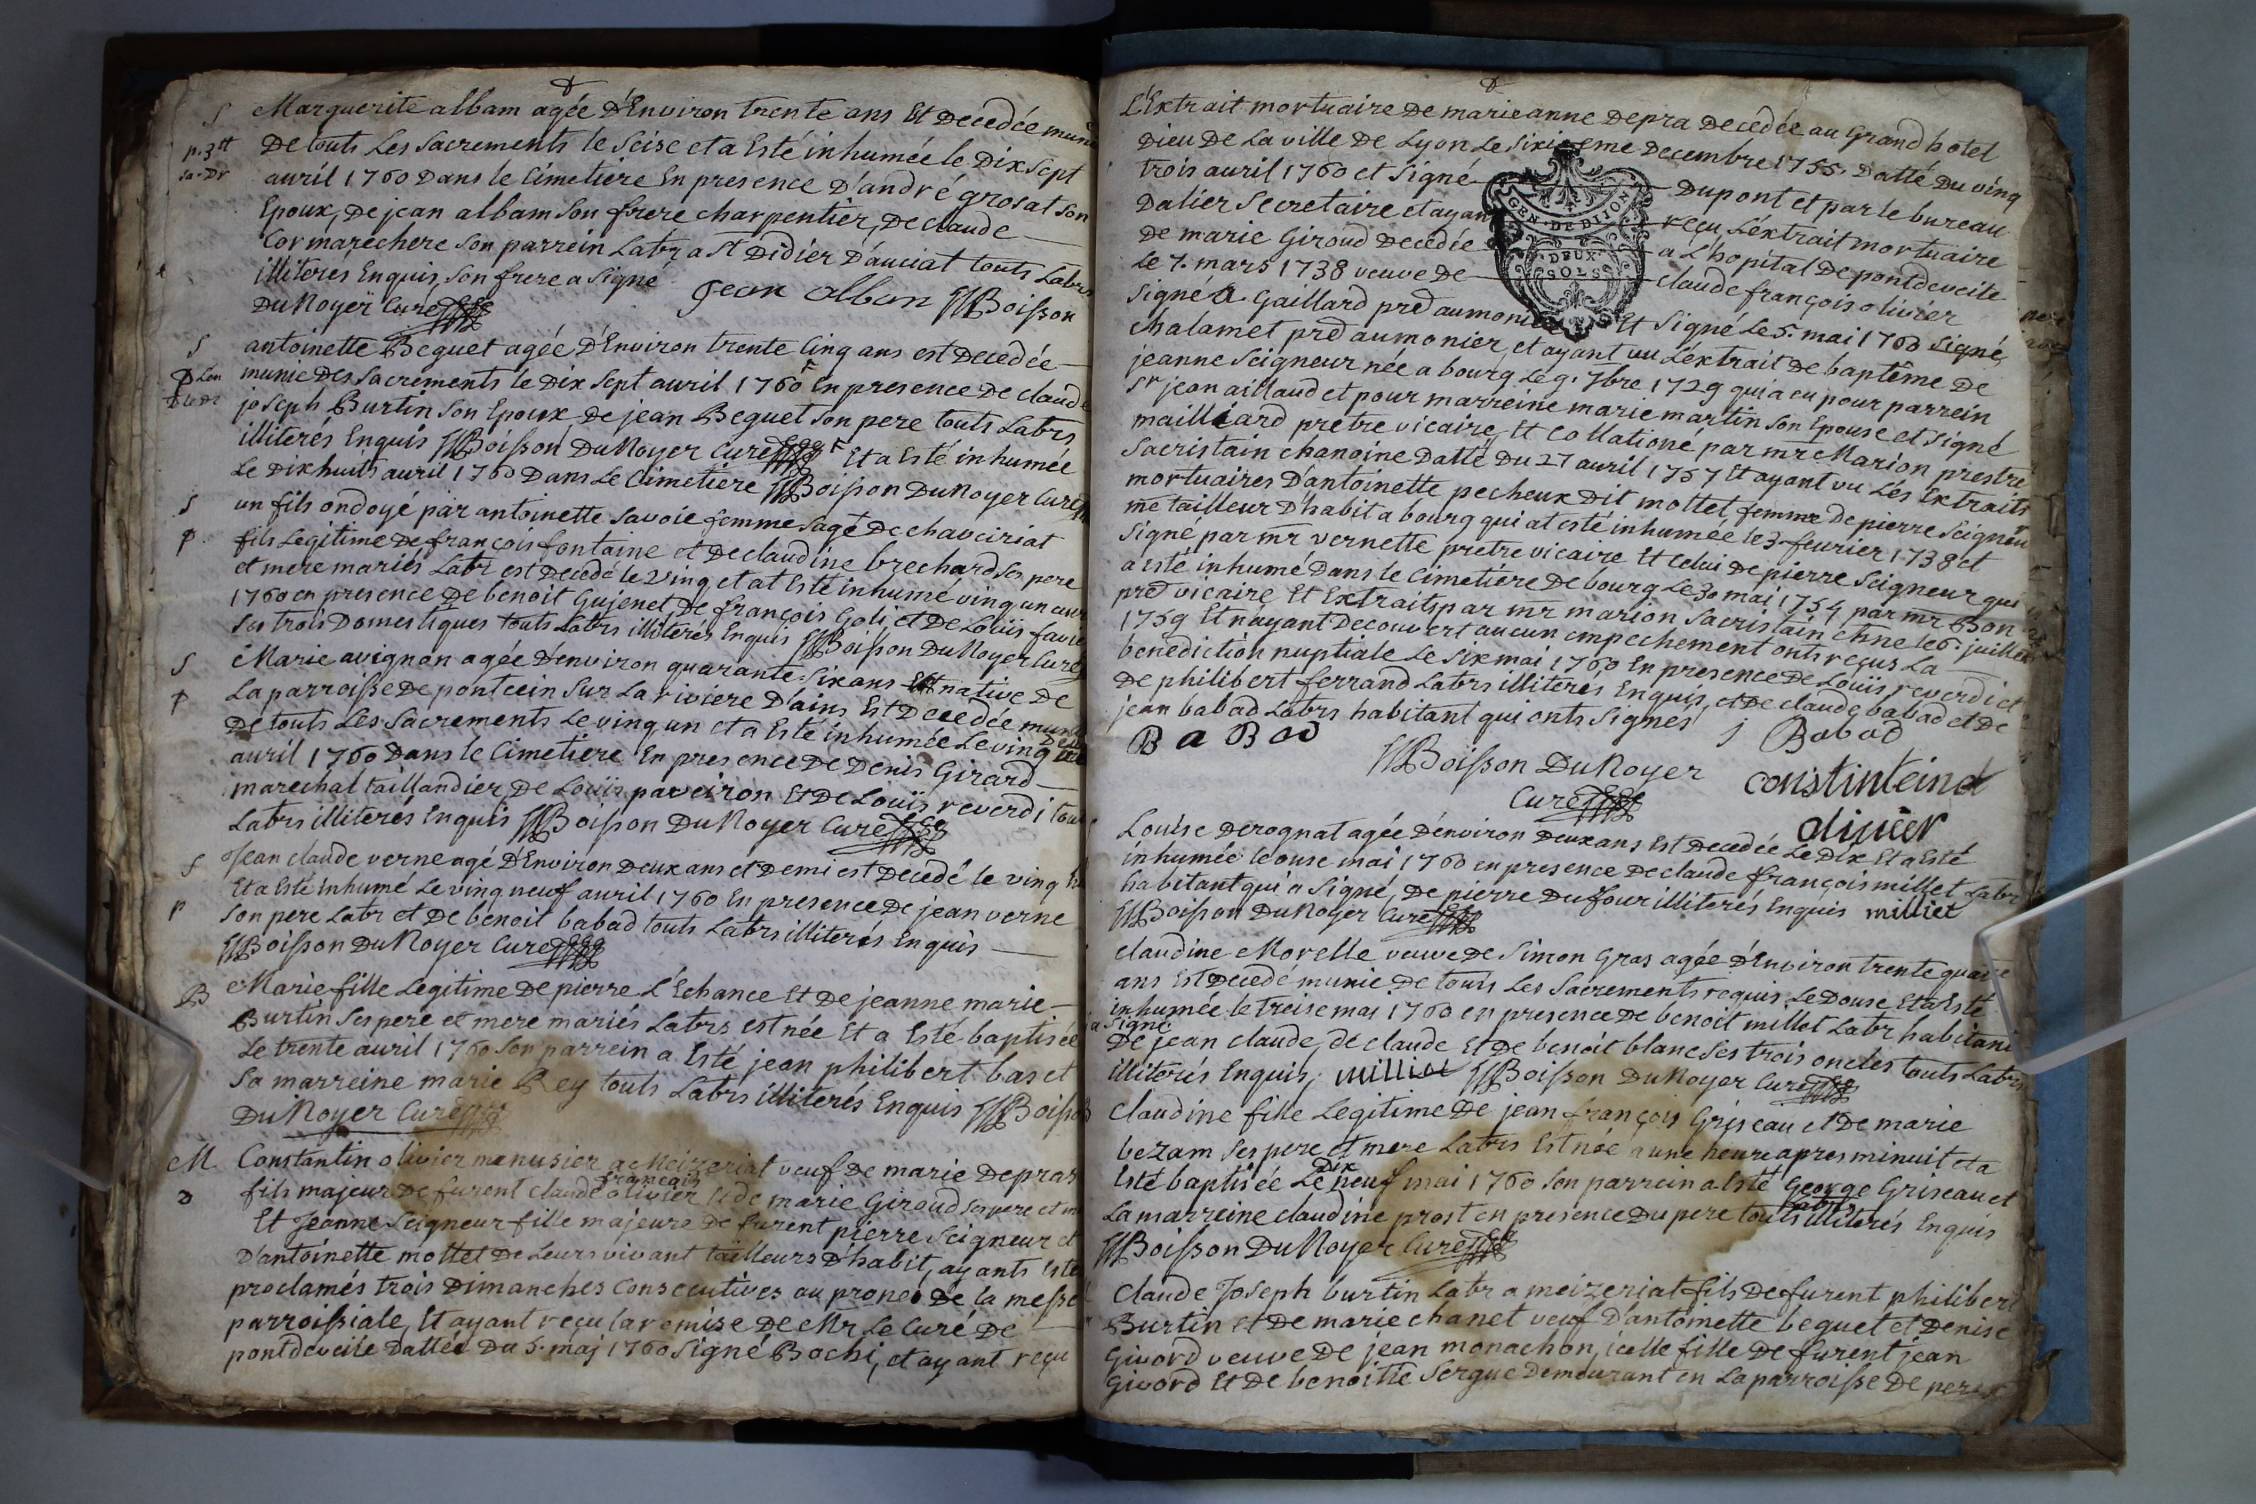 Marguerite albam agée D'Environ trente ans Et Decedée munie
De touts Les Sacrements le Seise et a Esté inhumée le Dix Sept
avril 1760 Dans le Cimetiere En presence D'andré grosat son
Epoux, De jean albam Son frere charpentier, De claude
Cormarechere Son parrein Labr a St Didier D'auuat touts Labrs
illiteres Enquis, Son frere a Signé
Jean alban JJBoisson
DuNoyer Curé
S
antoinette Beguet agée D'Environ trente Cinq ans est Decedée
munie Des Sacrements le Dix Sept avril 1760 En presence De claude
joseph Burtin Son Epoux De jean Beguet Son pere touts Labrs
illiterés Enquis JJBoisson DuNoyer Curé Et a Esté inhumée
Le Dix huit avril 1760 Dans Le Cimetiere JJBoisson DuNoyer Curé
S
un fils ondoyé par antoinette Savoie femme Sage De chaveiriat
p.
fils Legitime De françois fontaine et De claudine brechard Ses pere
et mere mariés Labr est Decedé le Ving et at Esté inhumé ving un avr
1760 en presence De benoit Gujenet, De françois Goli, et De Loüis favre
Ses trois Domestiques touts Labrs illiterés Enquis JJBoisson DuNoyer Curé
S
Marie avignon agée D'environ quarante-Six ans native De
p
La parroisse De pontcein Sur La riviere D'ains Est Decedée munie
De touts Les Sacrements Le ving un et a Esté inhumée Le ving Deux
avril 1760 Dans le Cimetiere En presence De Denis Girard
marechal taillandier, De Loüis paveiron Et De Loüis reverdi touts
Labrs illiterés Enquis JJBoisson DuNoyer Curé
S
Jean claude verne agé D'Environ Deux ans et Demi est Decedé le ving
Et a Esté Inhumé Le ving neuf avril 1760 En presence De jean verne
p
Son pere Labr et De benoit babad touts Labrs illiterés Enquis
JJBoisson DuNoyer Curé
B
Marie fille Legitime De pierre L'Echance Et De jeanne marie
Burtin Ses pere et mere mariés Labrs est née Et a Esté baptisée
Le trente avril 1760 Son parrein a Esté jean philibert bas et
Sa marreine marie Rey touts Labrs illiterés Enquis JJBoisson
DuNoyer Curé
M
Constantin olivier menusier a Meizeriat veuf De marie Depras
françois
fils majeur De furent claude olivier Et de marie Giroud Ses pere et m
Et Jeanne Seigneur fille majeure De furent pierre Seigneur et
D'antoinette mottet De Leurs vivant tailleurs D'habit, ayants Esté
proclamés trois Dimanches Consecutives au prone De la messe
parroissiale, Et ayant reçu la remise De Mr Le Curé De
pontdeveile Dattée Du 5. maj 1760 Signé Bochi, et ayant reçu
L'Extrait mortuaire De marie anne Depra Decedée au Grand hotel
Dieu De La ville De Lyon Le Sixieme Decembre 1755. Datté Du ving
trois avril 1760 et Signé Dupont et par le bureau
Dalier Secretaire et ayant reçu L'extrait mortuaire
De marie Giroud Decedée a L'hopital De pontdeveile
Le 7. mars 1738 veuve De claude françois olivier
GEN · DE DIJON
DEUX
SOLS
Signé a Gaillard pred aumonier Et Signé Le 5. mai 1760 Signé
chalamet pred aumonier, et ayant vu L'éxtrait De baptême De
jeanne Seigneur née a bourg Le 9. 7bre 1729 qui a eu pour parrein
Sr jean aillaud et pour marreine marie martin Son Epouse et Signé
maillard pretre vicaire, Et Collationé par mr Marion prestre
Sacristain chanoine Datté Du 27 avril 1757 Et ayant vu Les Extraits
mortuaires D'antoinette pecheux Dit mottet femme De pierre Seigneur
me tailleur D'habit a bourg qui at esté inhumée le 3 fevrier 1738 et
Signé par mr vernette pretre vicaire Et Celui De pierre Seigneur qui
a esté inhumé Dans le Cimetiére De bourg Le 30 mai 1754 par mr Bon
pred vicaire Et Extraits par mr marion Sacristain chne le 6. juillet
1759 Et n'ayant Decouvert aucun empechement onts reçus La
benediction nuptiale Le Six mai 1760 En presence De Loüis reverdi et
De philibert ferrand Labrs illiterés Enquis, et De claude babad et De
jean babad Labrs habitant qui onts Signés
BaBad J Babad
JJBoisson DuNoyer constinteind
Curé oliuier
Louise Derognat agée D'environ Deux ans Est Decedée Le Dix Et a Esté
inhumée le onse mai 1760 en presence De claude françois millet Labr
habitant qui a Signé, De pierre Dufour illiterés Enquis milliet
JJBoisson DuNoyer Curé
claudine Morelle veuve De Simon Gras agée D'Environ trente quatre
ans Est Decedé munie De touts Les Sacrements requis Le Douse Et a Esté
inhumée le treise mai 1760 en presence De benoit millet Labr habitant
a Signé
De jean claude, de claude Et De benoit blanc Ses trois oncles touts Labrs
illiterés Enquis, milliet JJBoisson DuNoyer Curé
Claudine fille Legitime De jean françois Griseau et De marie
bezam Ses pere et mere Labrs Est née a une heure apres minuit et a
Dix
Esté baptisée Le neuf mai 1760 Son parrein a Esté George Griseau et
Labrs
La marreine claudine prost en presence Du pere touts illiterés Enquis
JJBoisson DuNoyer Curé
Claude Joseph burtin Labr a meizeriat fils De furent philibert
Burtin et De marie chanet veuf D'antoinette beguet et Denise
Givord veuve De jean monachon, icelle fille De furent jean
Givord Et De benoitte Sergue Demeurant en La parroisse De